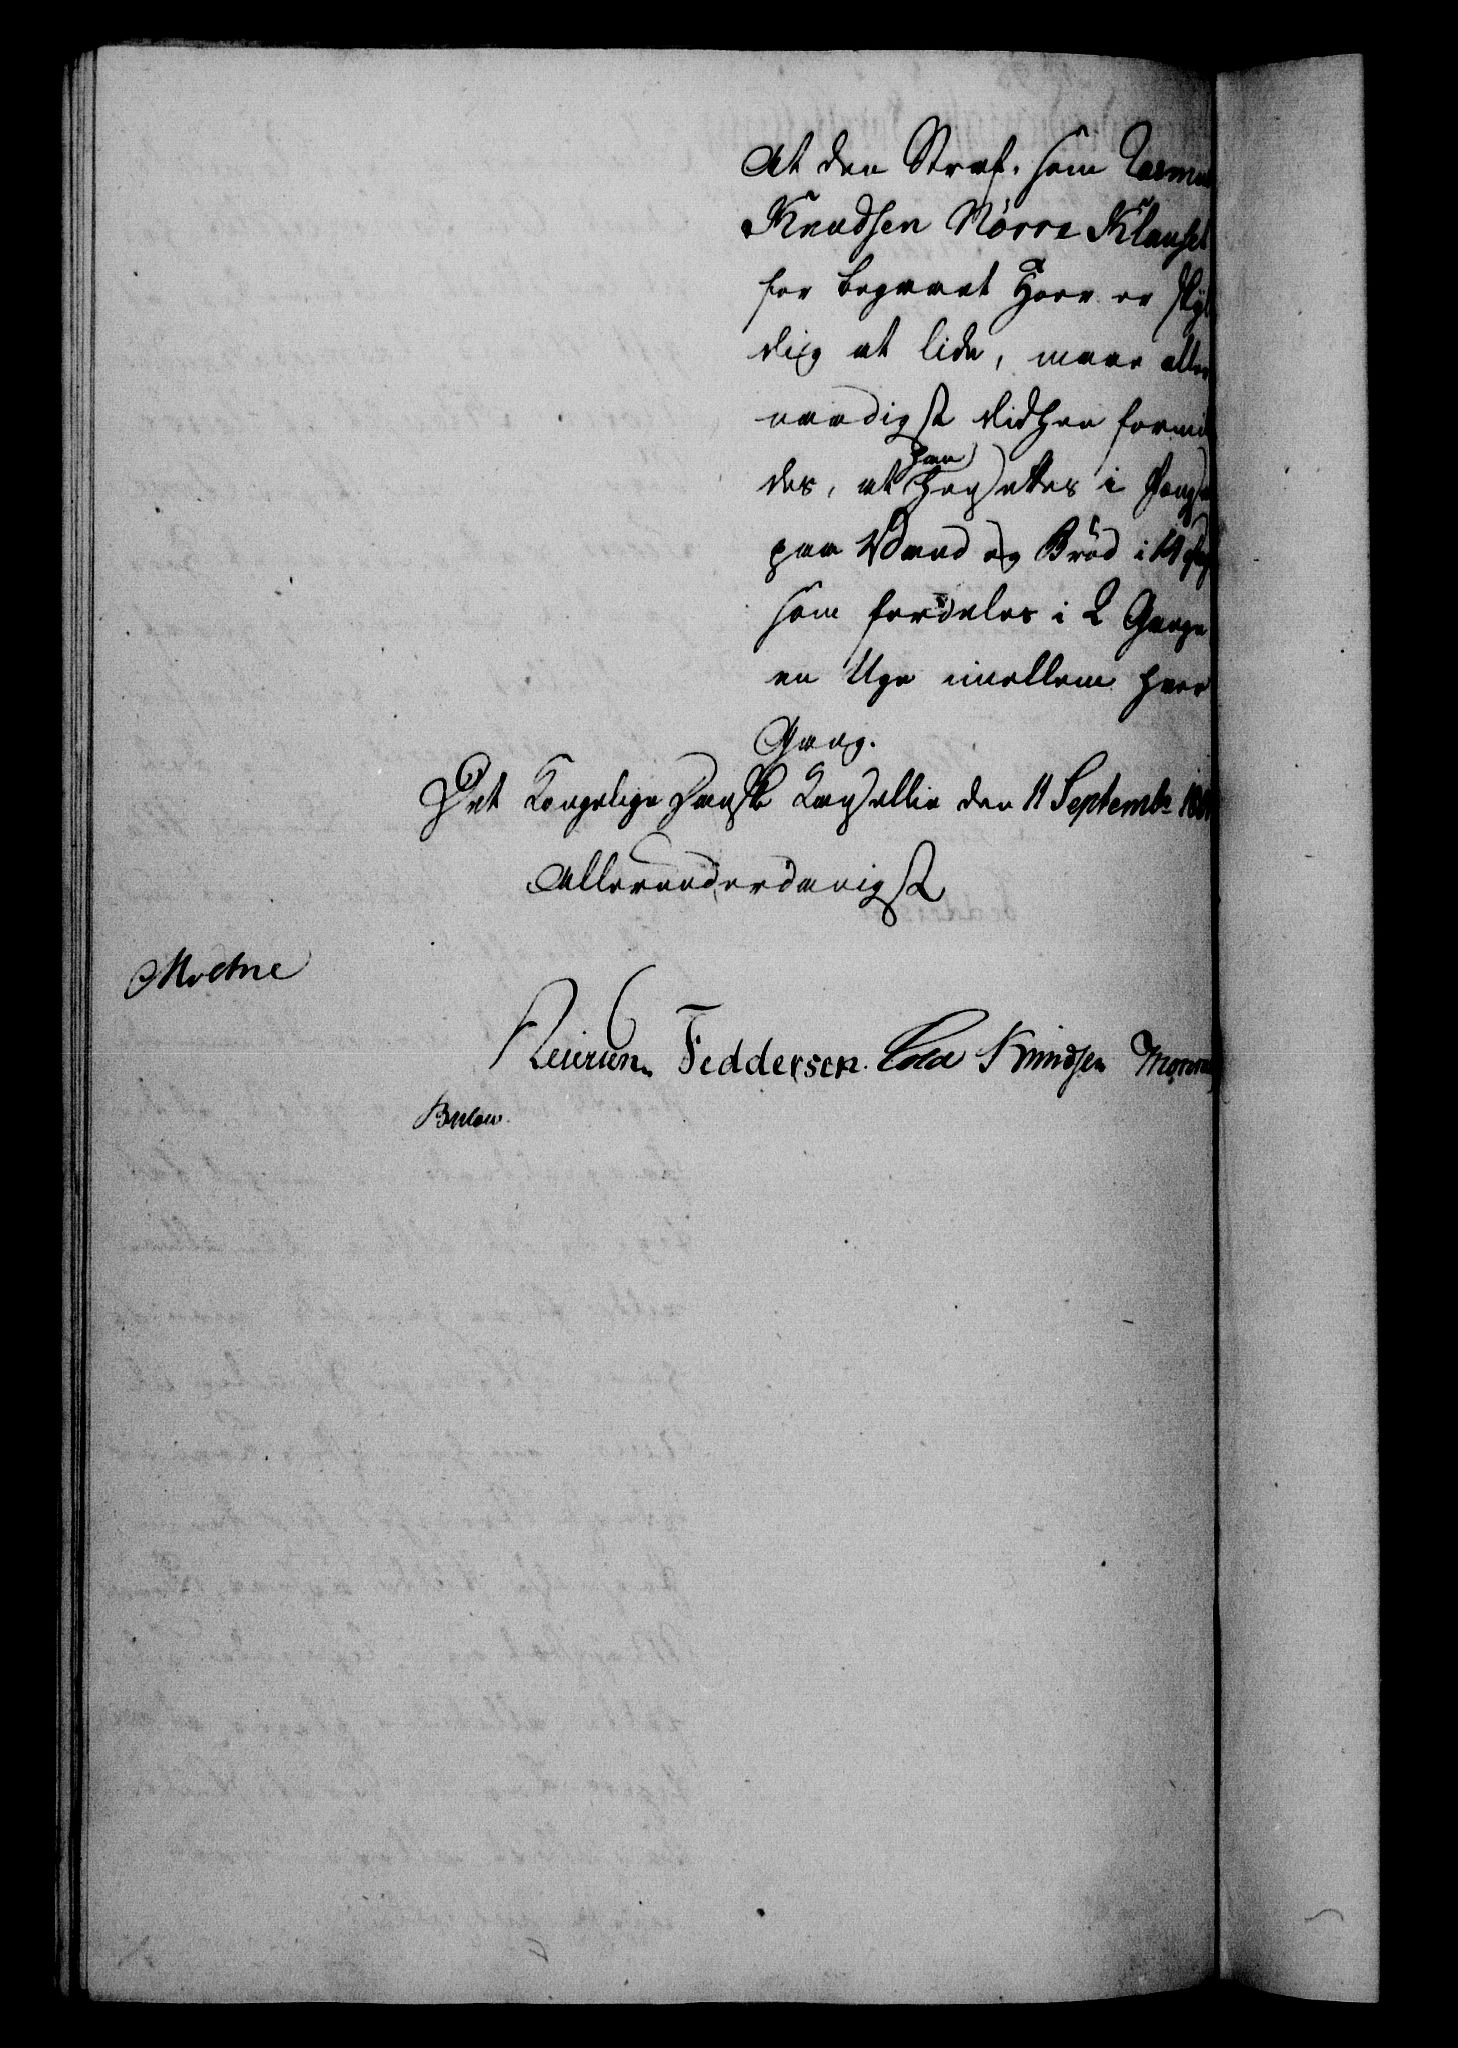 At den Straf, som
Knudsen Nörre Klauset
for begaaet Hoer er skyl
dig at lide, maae aller
naadigst didhen formil
des, at han hensættes i Fængs
paa Vand og Bröd i 14
som fordeles i 2 Gange
en Uge imellem hver
Gang.
Det Kongelige Danske Cancellie den 11 Septembr
Allerunderdanigst
Feddersen. Cold Knudsen
Bülow.